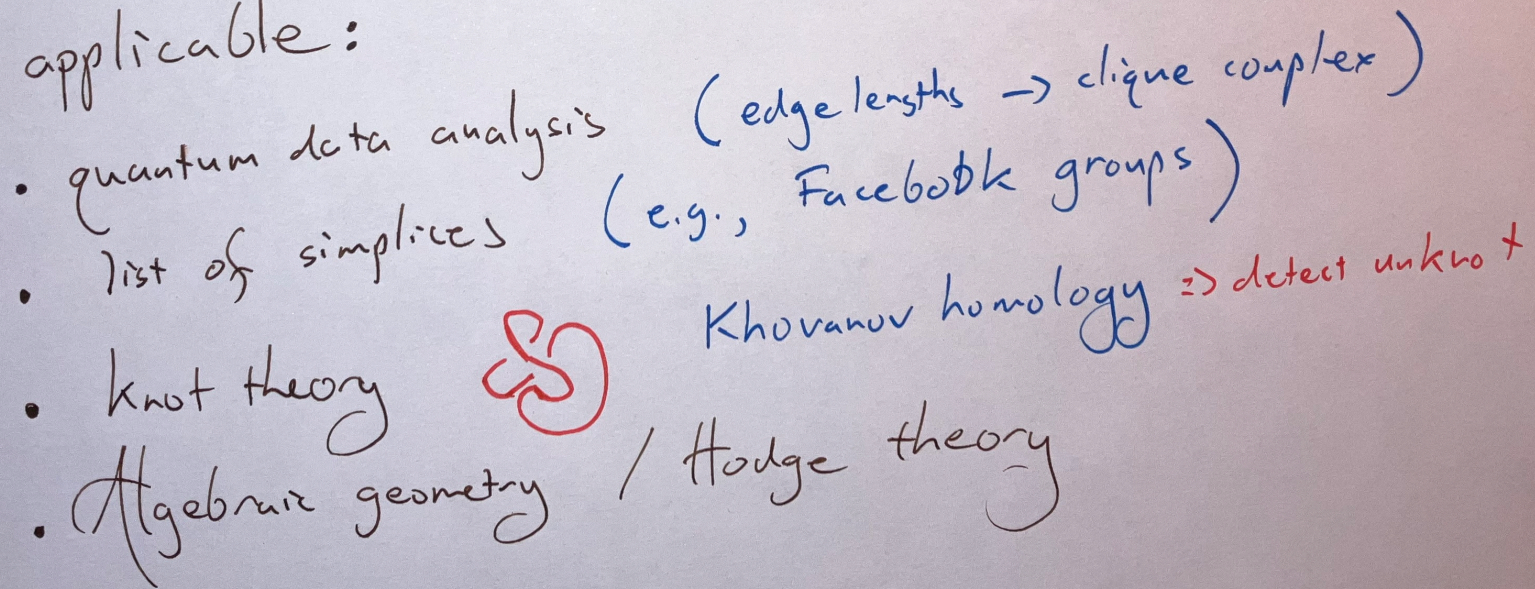 applicable:
• quantum data analysis (edge lengths → clique complex)
• list of simplices (e.g., Facebook groups)
• knot theory Khovanov homology ⇒ detect unknot
• Algebraic geometry / Hodge theory